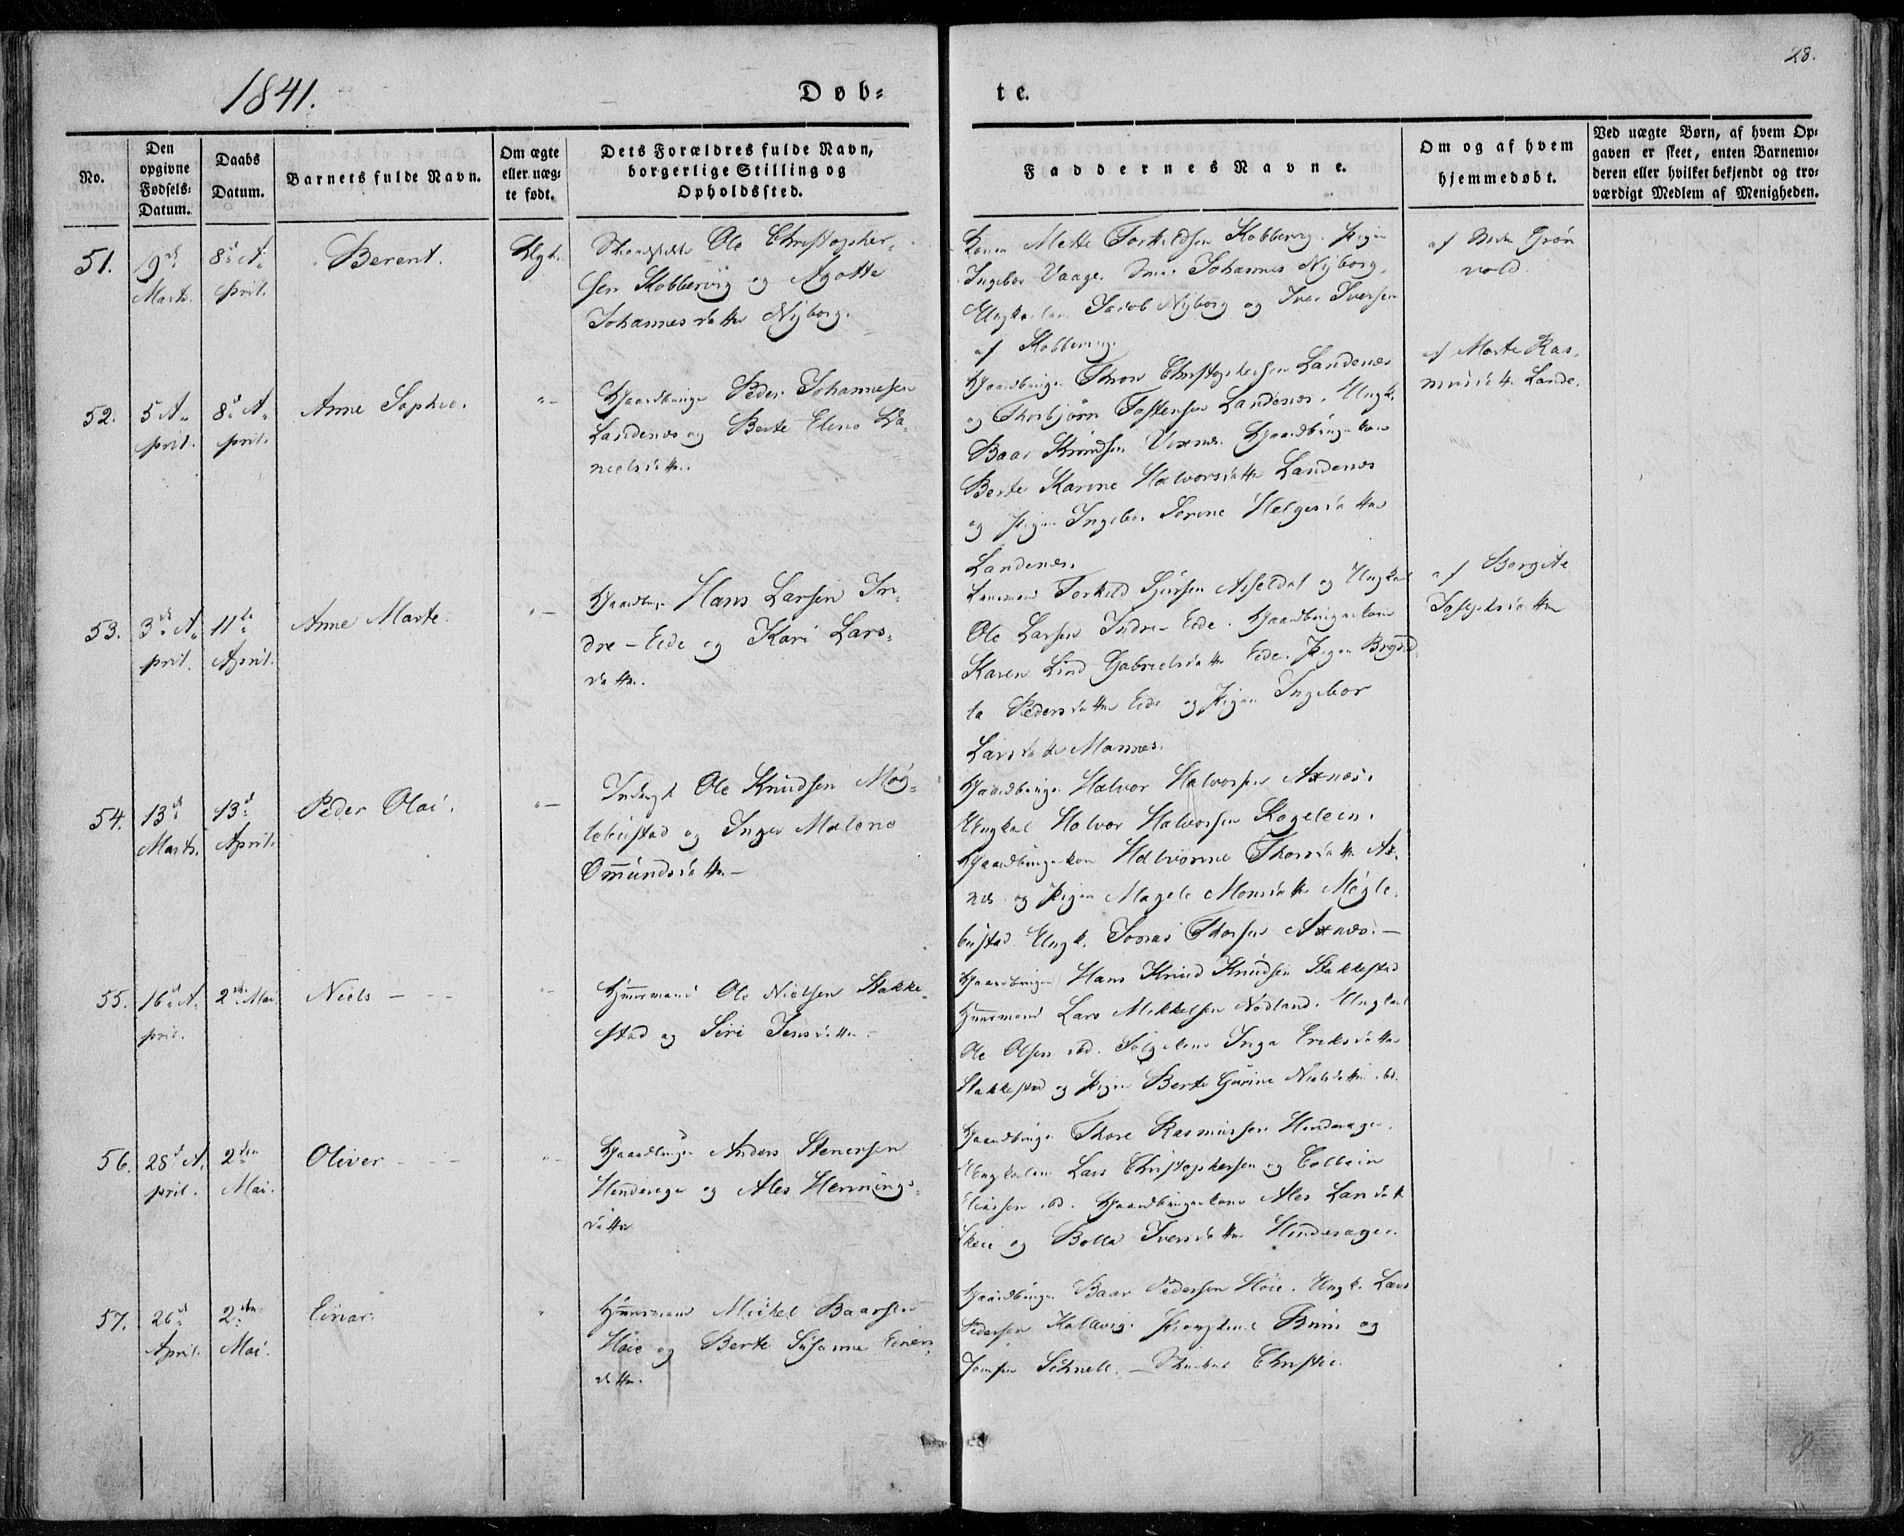 28.
1841.
Døb-
te.
No.
Den opgivne Fødsels-Datum.
Daabs Datum.
Barnets fulde Navn.
Om ægte eller uægte født.
Dets Forældres fulde Navn, borgerlige Stilling og Opholdssted.
Faddernes Navne.
Om og af hvem hjemmedøbt.
Ved uægte Børn, af hvem Opgaven er skeet, enten Barnemoderen eller hvilket bekjendt og troværdigt Medlem af Menigheden.
51.
19de Marts.
8de April.
Berent.
Ægt.
Ole Christopher-
sen Kobbervig og Agotte
Johannesdatter Nyborg.
Konen Mette Torkildsen Kobbervig. Pigen
Ingebor Vaage. Johannes Nyborg.
Ungkarlen Jacob Nyborg og Iver Iversen
af Kobbervig.
af Grøn
vold.
52.
5 April.
8de April.
Anne Sophie.
"–
Gaardbruger Peder Johannesen
Landenes og Berte Elene Da-
nielsdatter.
Gaardbruger Thron Christophersen Landenes
og Thorbjørn Tostensen Landenes. Ungk.
Baar Knudsen Gaardbrugerkone
Berte Karine Halvorsdatter Landenes
og Pigen Ingebor Serine Helgesdatter
Landenes.
af Marte Ras-
musdatter Lande.
53.
3de April.
11te April.
Anne Marte.
"–
Gaardbr. Hans Larsen In-
dre-Eide og Kari Lars-
datter.
Torkild Sjursen og Ungkarl
Ole Larsen Indre Eide. Gaardbrugerkone
Karen Lind Gabrielsdatter Eide. Pigen
Pedersdatter Eide og Pigen Ingebor
Larsdatter Mannes.
af Borgite
Josephsdatter
54.
13de Marts.
13de April.
Peder Olai.
"–
Ole Knudsen Møg-
lebustad og Inger Malene
Omundsdatter –
Gaardbruger Halvor Halvorsen Axnes.
Ungkarl Halvor Halvorsen
Gaardbrugerkone Thorsdatter Ax-
nes og Pigen Magele Monsdatter Møgle-
bustad. Ungk. Thorsen Axnes. –
55.
16de April.
2den Mai.
Niels – – –
"–
Huusmand Ole Nielsen Stakke-
stad og Siri Jensdatter –
Gaardbruger Hans Knud Knudsen Stakkestad
Huusmand Lars Mikkelsen Nodland. Ungkarl
Ole Olsen ibd. Inga Eriksdatter
Stakkestad og Pigen Berte Gurine Nielsdatter ibd.
56.
28de April.
2den Mai.
Oliver – – –
"–
Gaardbruger Anders Stenersen
Hinderager og Ales Hennings-
datter
Gaardbruger Thore Rasmussen Hinderager.
Ungkarlene Lars Christophersen og Colbein
Eliassen ibd. Gaardbrugerkone Ales Larsdatter
og Bolla Iversdatter Hinderager.
57.
26de April.
2den Mai.
Einar.
"
Huusmand Mickel Baarsen
Høie og Berte Susanne Einars-
datter.
Gaardbruger Baar Pedersen Høie. Ungk. Lars
Pedersen Kallevig. og
Jomfru Schnell. – Christie.